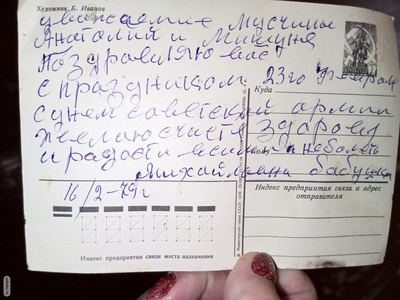 Художник Б. Иванов
уважаемие Мусчины
Анатолий и Мишуня
Поздровляю вас
с праздницом 23го Феврале
сунем советский армии
желаю счастя здоровя
и радости всим
Михайловна бабушка
16/2-79г
Куда
Индекс предприятия связи и адрес отправителя
Индекс предприятия связи места назначения